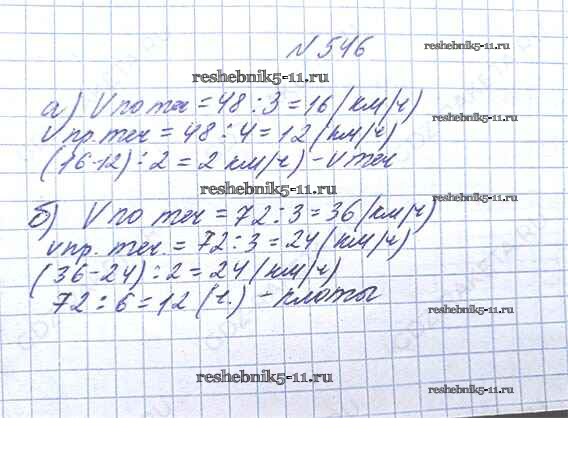 № 546
reshebnik5-11.ru
reshebnik5-11.ru
а) V по теч = 48 : 3 = 16 (км/ч)
reshebnik5-11.ru
v пр. теч = 48 : 4 = 12 (км/ч)
(16-12) : 2 = 2 км/ч) - v теч
reshebnik5-11.ru
reshebnik5-11.ru
б) V по теч = 72 : 3 = 36 (км/ч)
v пр. теч. = 72 : 3 = 24 (км/ч)
(36-24) : 2 = 24 (км/ч)
72 : 6 = 12 (ч.) - плоты
reshebnik5-11.ru
reshebnik5-11.ru
reshebnik5-11.ru